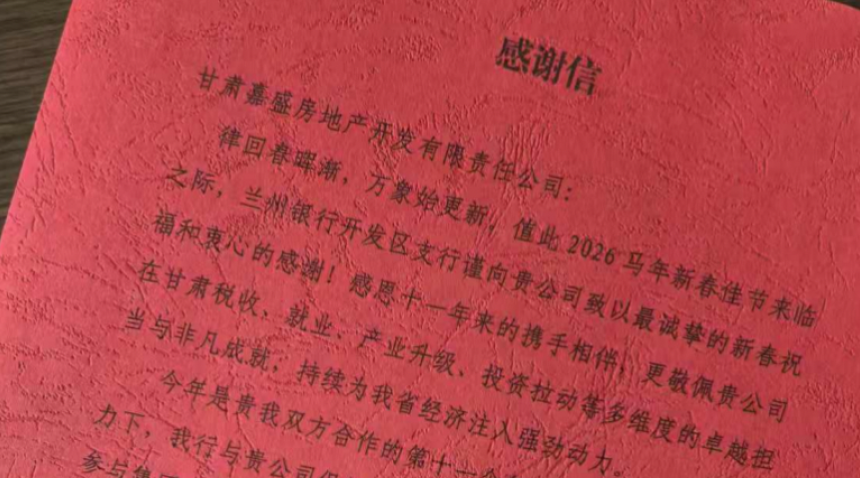 感谢信
甘肃嘉盛房地产开发有限责任公司：
律回春晖渐，万象始更新，值此2026马年新春佳节来临
之际，兰州银行开发区支行谨向贵公司致以最诚挚的新春祝
福和衷心的感谢！感恩十一年来的携手相伴，更敬佩贵公司
在甘肃税收、就业、产业升级、投资拉动等多维度的卓越担
当与非凡成就，持续为我省经济注入强劲动力。
今年是贵我双方合作的第十一个
力下，我行与贵公司
参与